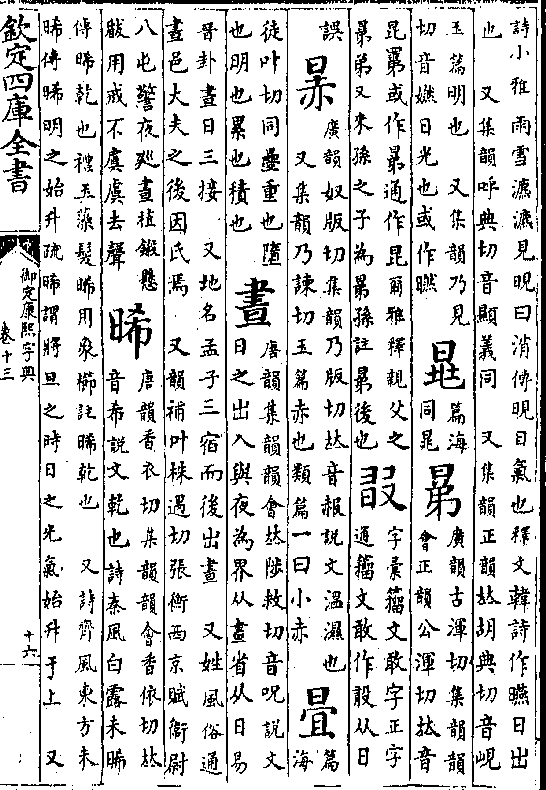 詩小雅雨雪瀌瀌見晛曰消傳晛日氣也釋文韓詩作曣日出
也　又集韻呼典切音顯義同　又集韻正韻𠀤胡典切音峴
玉篇明也　又集韻乃見
切音㜤日光也或作㬗
篇海
同晁
𣊫
廣韻古渾切集韻韻
會正韻公渾切𠀤音
昆𣊫或作𣊫通作昆爾雅釋親父之
𣊫弟又來孫之子為𣊫孫註𣊫後也
字彙籀文敢字正字
通籀文敢作𣪏从日
誤
㬮
廣韻奴版切集韻乃版切𠀤音赧說文溫濕也
又集韻乃諫切玉篇赤也類篇一曰小赤
篇
海
徒叶切同疊重也墮
也明也累也積也
晝
唐韻集韻韻會𠀤陟救切音呪說文
日之出入與夜為界从畫省从日易
晉卦晝日三接　又地名孟子三宿而後出晝　又姓風俗通
晝邑大夫之後因氏焉　又韻補叶株遇切張衡西京賦衞尉
八屯警夜廵晝植鎩懸
瞂用戒不虞虞去聲
晞
唐韻香衣切集韻韻會香依切𠀤
音希說文乾也詩秦風白露未晞
傳晞乾也禮玉藻髮晞用象櫛註晞乾也　又詩齊風東方未
晞傳晞明之始升疏晞謂將旦之時日之光氣始升于上　又
欽定四庫全書
御定康熙字典
卷十三
十六